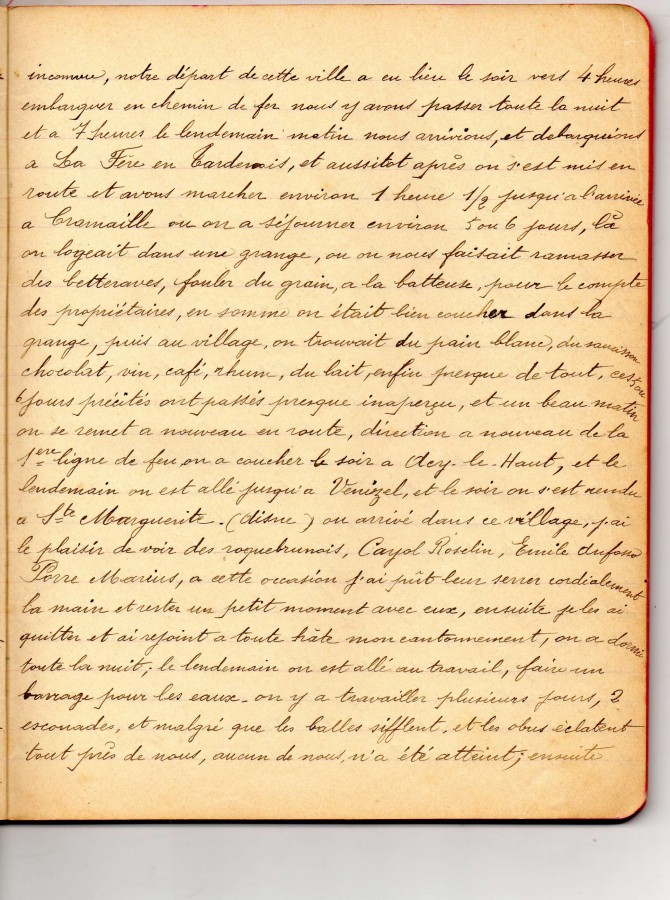 inconnue, notre départ de cette ville a eu lieu le soir vers 4 heures
embarquer en chemin de fer nous y avons passer toute la nuit
et a 7 heures le lendemain matin nous arrivions, et debarquions
a La Fère en Tardenois, et aussitot après on s'est mis en
route et avons marcher environ 1 heure 1/2 jusqu'a l'arrivée
a Cramaille ou on a séjourner environ 5 ou 6 jours, là
on logeait dans une grange, ou on nous faisait ramasser
des betteraves, fouler du grain, a la batteuse, pour le compte
des propriétaires, en somme on était bien coucher dans la
grange, puis au village, on trouvait du pain blanc, du saucisson
chocolat, vin, café, rhum, du lait, enfin presque de tout, ces 5 ou
6 jours précités ont passés presque inaperçu, et un beau matin
on se remet a nouveau en route, direction a nouveau de la
1ere ligne de feu, on a coucher le soir a Acy-le-Haut, et le
lendemain on est allé jusqu'a Venizel, et le soir on s'est rendu
a Ste Marguerite. (Aisne) ou arrivé dans ce village, j'ai
le plaisir de voir des roquebrunois, Cayol Roselin, Emile dufond
Porre Marius, a cette occasion j'ai pût leur serrer cordialement
la main et rester un petit moment avec eux, ensuite je les ai
quitter et ai rejoint a toute hâte mon cantonnement, on a dormi
toute la nuit; le lendemain on est allé au travail, faire un
barrage pour les eaux. on y a travailler plusieurs jours, 2
escouades, et malgré que les balles sifflent, et les obus éclatent
tout près de nous, aucun de nous, n'a été atteint; ensuite